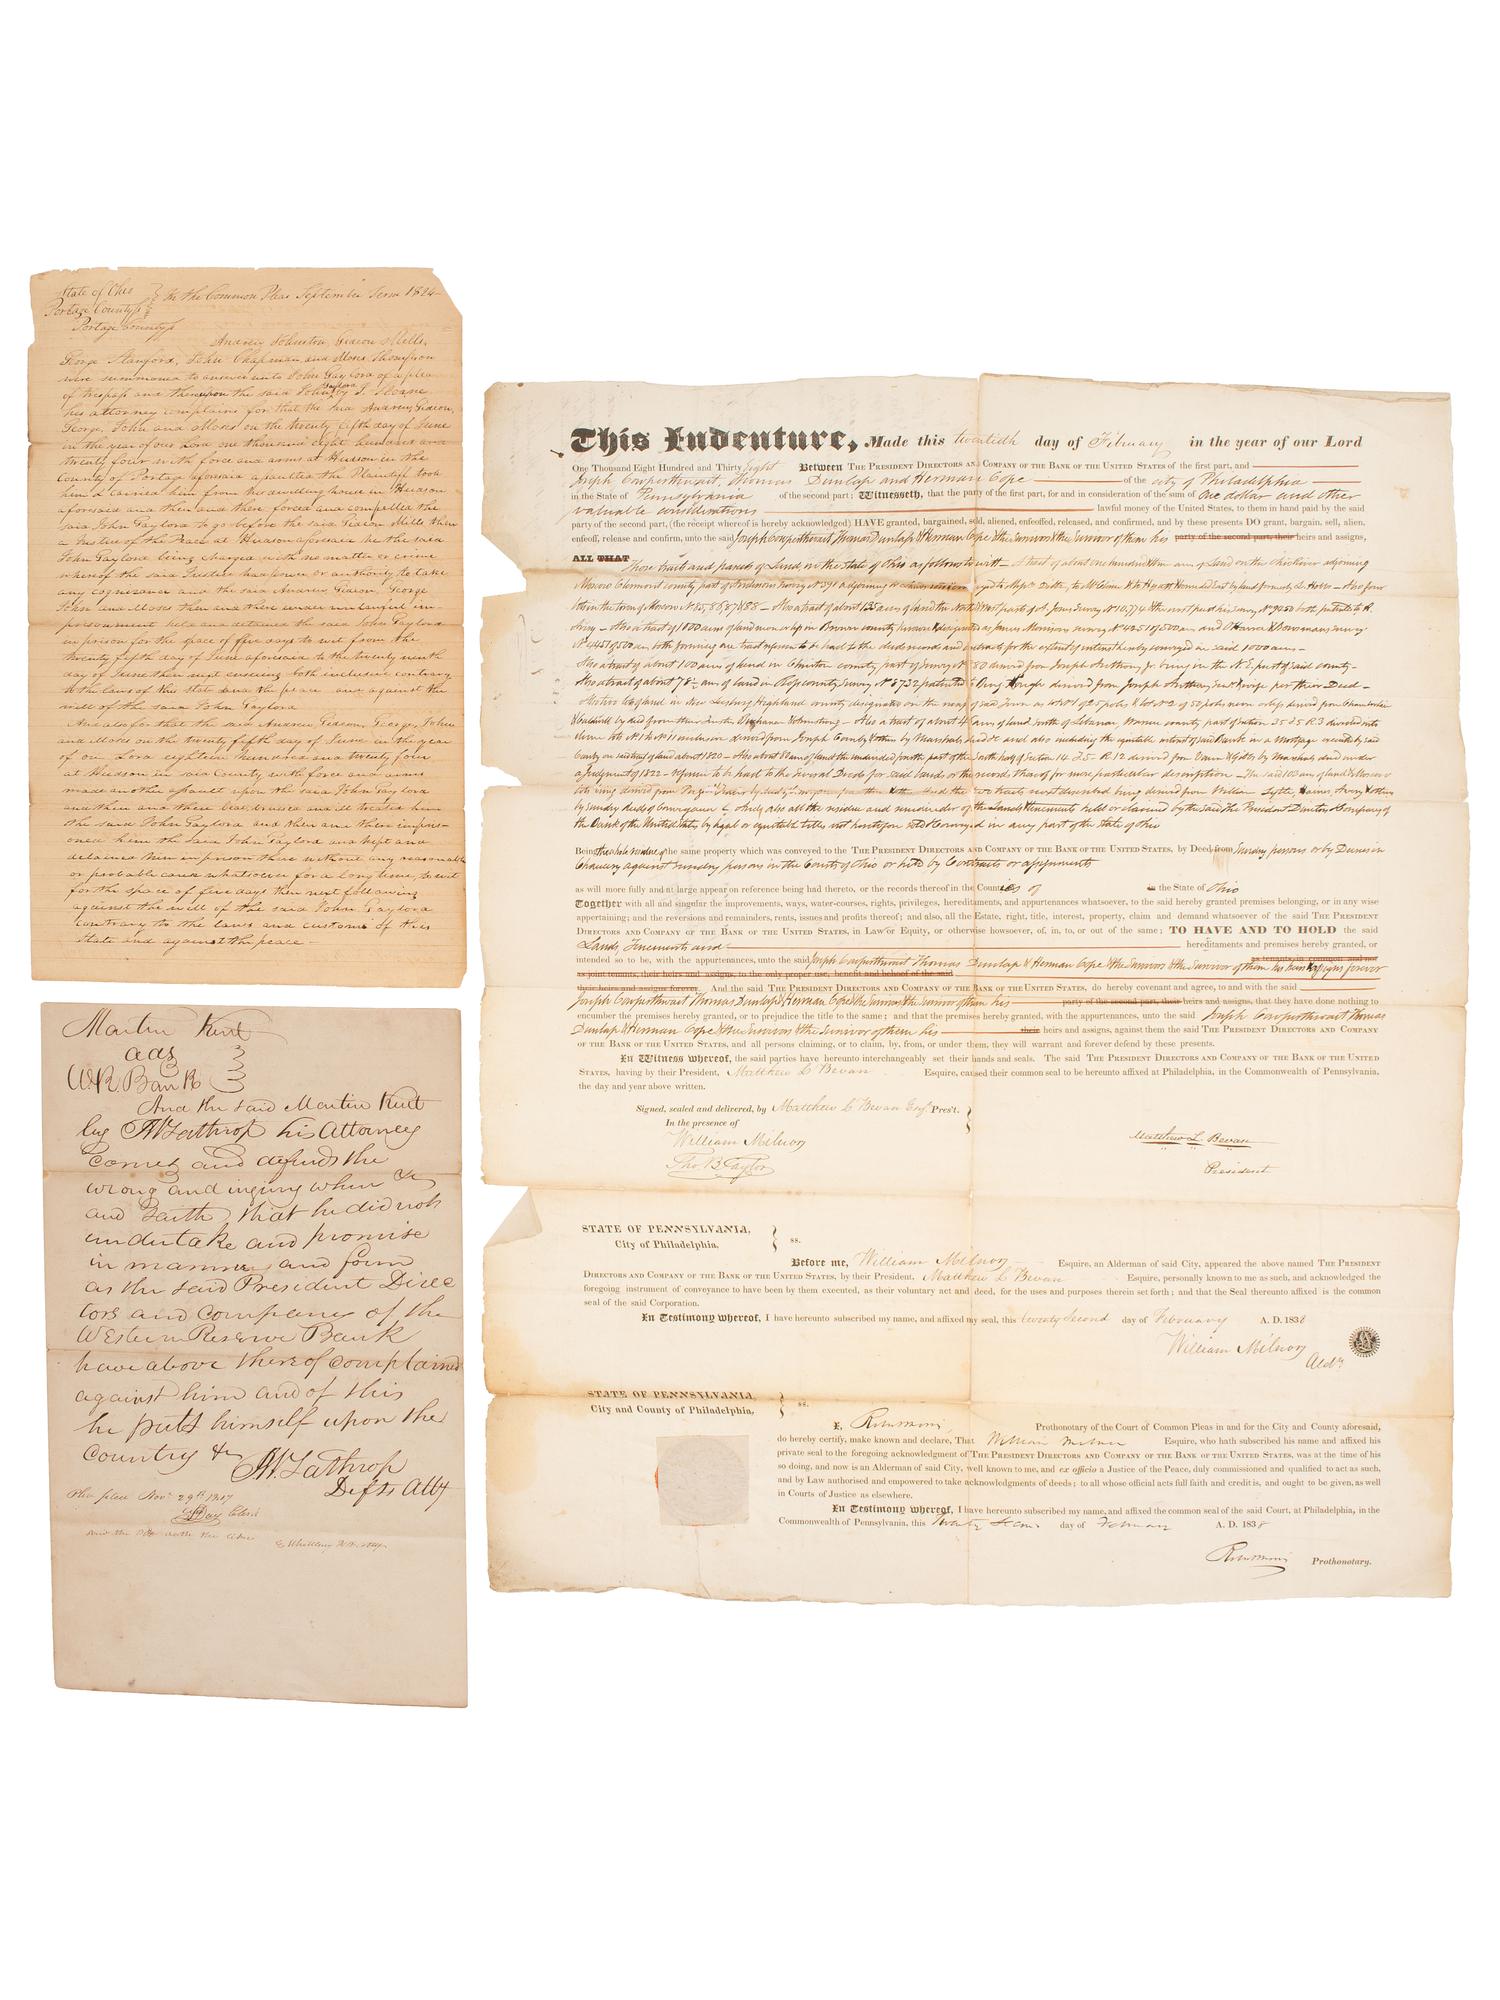 State of Ohio
Portage County ss
In the Common Pleas September Term 1824
Portage County ss
Andrew Johnston, Gideon Mills,
George Stanford, John Chapman, and Moses Thompson
were summoned to answer unto John Gaylord of a plea
of trespass and thereupon the said John Gaylord by J. Sloane
his attorney complains for that the said Andrew, Gideon,
George, John and Moses on the twenty fifth day of June
in the year of our Lord one thousand eight hundred and
twenty four with force and arms at Hudson in the
County of Portage aforesaid assaulted the Plaintiff took
him & carried him from his dwelling house in Hudson
aforesaid and then and there forced and compelled the
said John Gaylord to go before the said Gideon Mills then
a Justice of the Peace at Hudson aforesaid he the said
John Gaylord being charged with no matter or crime
whereof the said Justice had power or authority to take
any cognizance and the said Andrew Gideon, George
John and Moses then and there under unlawful im-
prisonment held and detained the said John Gaylord
in prison for the space of five days to wit from the
twenty fifth day of June aforesaid to the twenty ninth
day of June then next ensuing both inclusive contrary
to the laws of this state and the peace and against the
will of the said John Gaylord
And also for that the said Andrew Gideon, George, John
and Moses on the twenty fifth day of June in the year
of our Lord eighteen hundred and twenty four
at Hudson in said County with force and arms
made another assault upon the said John Gaylord
and then and there beat, bruised and ill treated him
the said John Gaylord and then and there impris-
oned him the said John Gaylord and kept and
detained him in prison there without any reasonable
or probable cause whatsoever for a long time, to wit
for the space of five days then next following
against the will of the said John Gaylord
contrary to the laws and customs of this
State and against the peace
Martin Kent
ads
W.R. Bank
And the said Martin Kent
by A W Lathrop his Attorney
comes and defends the
wrong and injury when &c
and saith that he did not
undertake and promise
in manner and form
as the said President Direc
tors and company of the
Western Reserve Bank
have above thereof complained
against him and of this
he puts himself upon the
country &c
A W Lathrop
Defts Atty
Plea filed Nov. 29th
Day Clerk
and the Plff doth the like
E Whittlesey
This Indenture, Made this twentieth day of February in the year of our Lord
One Thousand Eight Hundred and Thirty eight Between THE PRESIDENT DIRECTORS AND COMPANY OF THE BANK OF THE UNITED STATES of the first part, and
Joseph Cowperthwait, Thomas Dunlap and Herman Cope of the city of Philadelphia
in the State of Pennsylvania of the second part; Witnesseth, that the party of the first part, for and in consideration of the sum of One dollar and other
valuable considerations lawful money of the United States, to them in hand paid by the said
party of the second part, (the receipt whereof is hereby acknowledged) HAVE granted, bargained, sold, aliened, enfeoffed, released, and confirmed, and by these presents DO grant, bargain, sell, alien,
enfeoff, release and confirm, unto the said Joseph Cowperthwait, Thomas Dunlap & Herman Cope & the Survivors & the Survivor of them his party of the second part, their heirs and assigns,
ALL THAT Those tracts and parcels of Land, in the State of Ohio as follows to wit - A tract of about one hundred acres of Land on the Ohio river adjoining
Moscow Clermont county part of Andersons Survey No 391 adjoining
lots in the town of Moscow No 85, 86, 87 & 88 - Also a tract of about 125 acres of land the North West part of A. Jones Survey No 10,774 & the west part his survey No 9250 both patented to R.
Avey - Also a tract of 1000 acres of land more or less in Brown county known & designated as James Morrisons survey No 4251 of 500 acres and O'Harra & Bowmans survey
No 4451 of 500 acres both forming one tract reference to be had to the deeds records and contracts for the extent of interest hereby conveyed in said 1000 acres -
Also a tract of about 100 acres of land in Clinton county, part of Survey No 80 derived from Joseph Anthony Jr. being in the N.E. part of said county -
Also a tract of about 78½ acres of land in Ross county Survey No 8732 patented to Benj. Hough derived from Joseph Anthony Sen. & wife per their Deed -
Also lots of land in New Lexington Highland county designated on the map of said Town as lot No 1 of 25 poles & lot No 2 of 50 poles more or less derived from Chamberlain
& Caldwell by deed from their Trustee - Also a tract of about 4 acres of land South of Lebanon Warren county part of Section 35 T 5 R 3 divided into
eleven lots No 1 to No 11 inclusive derived from Joseph Canby & others by Marshals deed &c and also including the equitable interest of said Bank in a Mortgage executed by said
Canby on said tract of land about 1820 - Also about 80 acres of land the undivided fourth part of the South half of Section 14 T 5 R 12 derived from by Marshals deed under
a Judgment of 1822 - reference to be had to the Several Deeds for said lands or the records thereof for more particular description - The said 100 acres of land & Moscow
lots being derived from the two tracts next described being derived from William Lytle James Avey & others
by Sundry deeds of Conveyance &c. And, also all the residue and remainder of the Lands & tenements held or claimed by the said The President Directors & Company of
the Bank of the United States by legal or equitable titles not heretofore sold & Conveyed in any part of the State of Ohio
Being the whole residue of the same property which was conveyed to the THE PRESIDENT DIRECTORS AND COMPANY OF THE BANK OF THE UNITED STATES, by Deed, from Sundry persons or by Decrees in
Chancery against Sundry persons in the Courts of Ohio or held by Contracts or assignments
as will more fully and at large appear on reference being had thereto, or the records thereof in the Counties of in the State of Ohio
Together with all and singular the improvements, ways, water-courses, rights, privileges, hereditaments, and appurtenances whatsoever, to the said hereby granted premises belonging, or in any wise
appertaining; and the reversions and remainders, rents, issues and profits thereof; and also, all the Estate, right, title, interest, property, claim and demand whatsoever of the said THE PRESIDENT
DIRECTORS AND COMPANY OF THE BANK OF THE UNITED STATES, in Law or Equity, or otherwise howsoever, of, in, to, or out of the same; TO HAVE AND TO HOLD the said
Lands, Tenements and hereditaments and premises hereby granted, or
intended so to be, with the appurtenances, unto the said Joseph Cowperthwait Thomas Dunlap & Herman Cope & the Survivors & the Survivor of them his heirs & assigns forever as tenants in common and not
as joint tenants, their heirs and assigns, to the only proper use, benefit and behoof of the said
their heirs and assigns forever. And the said THE PRESIDENT DIRECTORS AND COMPANY OF THE BANK OF THE UNITED STATES, do hereby covenant and agree, to and with the said
Joseph Cowperthwait Thomas Dunlap & Herman Cope & the Survivors & the Survivor of them his party of the second part, their heirs and assigns, that they have done nothing to
encumber the premises hereby granted, or to prejudice the title to the same; and that the premises hereby granted, with the appurtenances, unto the said Joseph Cowperthwait Thomas
Dunlap & Herman Cope & the Survivors & the Survivor of them his their heirs and assigns, against them the said THE PRESIDENT DIRECTORS AND COMPANY
OF THE BANK OF THE UNITED STATES, and all persons claiming, or to claim, by, from, or under them, they will warrant and forever defend by these presents.
In Witness whereof, the said parties have hereunto interchangeably set their hands and seals. The said THE PRESIDENT DIRECTORS AND COMPANY OF THE BANK OF THE UNITED
STATES, having by their President, Matthew L Bevan Esquire, caused their common seal to be hereunto affixed at Philadelphia, in the Commonwealth of Pennsylvania,
the day and year above written.
Signed, sealed and delivered, by Matthew L Bevan Esq. Pres't.
In the presence of
William Milnor
Tho. B Taylor
Matthew L. Bevan
President
STATE OF PENNSYLVANIA,
City of Philadelphia, ss.
Before me, William Milnor Esquire, an Alderman of said City, appeared the above named THE PRESIDENT
DIRECTORS AND COMPANY OF THE BANK OF THE UNITED STATES, by their President, Matthew L Bevan Esquire, personally known to me as such, and acknowledged the
foregoing instrument of conveyance to have been by them executed, as their voluntary act and deed, for the uses and purposes therein set forth; and that the Seal thereunto affixed is the common
seal of the said Corporation.
In Testimony whereof, I have hereunto subscribed my name, and affixed my seal, this twenty Second day of February A. D. 1838
William Milnor
Aldn.
STATE OF PENNSYLVANIA,
City and County of Philadelphia, ss.
I, Prothonotary of the Court of Common Pleas in and for the City and County aforesaid,
do hereby certify, make known and declare, That William Milnor Esquire, who hath subscribed his name and affixed his
private seal to the foregoing acknowledgment of THE PRESIDENT DIRECTORS AND COMPANY OF THE BANK OF THE UNITED STATES, was at the time of his
so doing, and now is an Alderman of said City, well known to me, and ex officio a Justice of the Peace, duly commissioned and qualified to act as such,
and by Law authorised and empowered to take acknowledgments of deeds; to all whose official acts full faith and credit is, and ought to be given, as well
in Courts of Justice as elsewhere.
In Testimony whereof, I have hereunto subscribed my name, and affixed the common seal of the said Court, at Philadelphia, in the
Commonwealth of Pennsylvania, this twenty Second day of February A. D. 1838
Prothonotary.